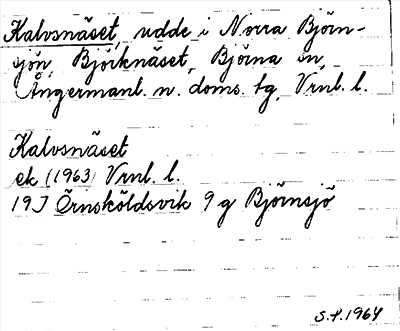 Kalvsnäset, udde i Norra Björn-
sjön, Björknäset, Björna sn,
Ångermanl. n. doms. tg, Vrnl. l.
Kalvsnäset
ek (1963) Vrnl. l.
19J Örnsköldsvik 9 g Björnsjö
S.P. 1964